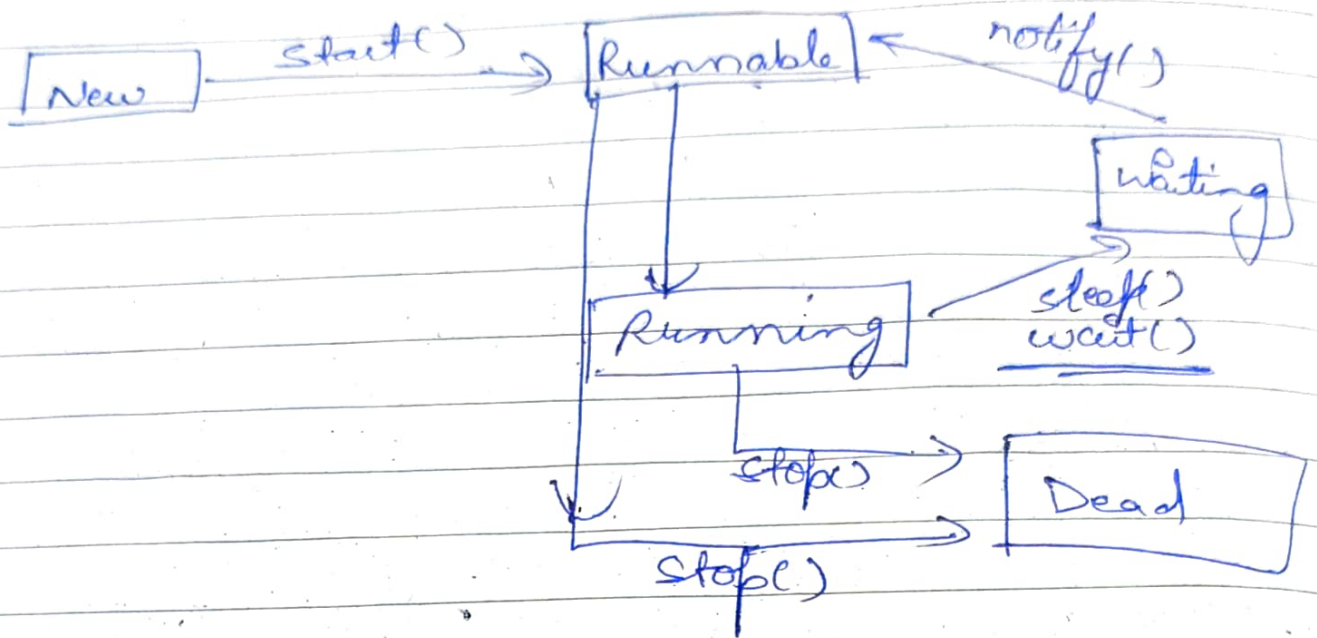 New
start()
Runnable
notify()
waiting
Running
sleep()
wait()
stop()
Dead
stop()